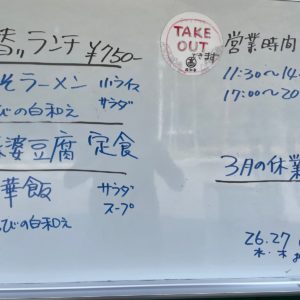 ランチ ¥750-
そラーメン 小ライス
サラダ
びの白和え
婆豆腐 定食
華飯 サラダ
スープ
びの白和え
TAKE
OUT
できます
営業時間
11:30〜14
17:00〜20
3月の休業
26.27
水・木